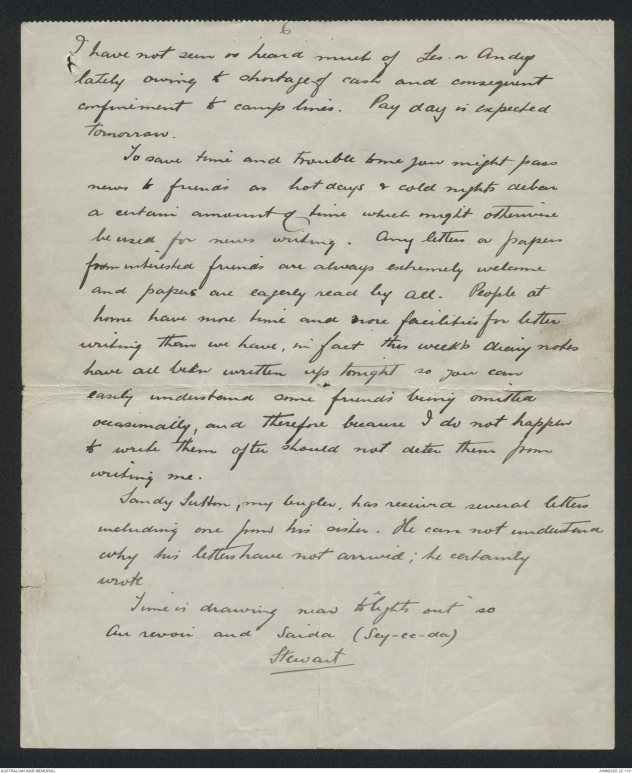 6
I have not seen or heard much of Les. or Andy
lately owing to shortage of cash and consequent
confinement to camp lines. Pay day is expected
tomorrow.
To save time and trouble to me you might pass
news to friends as hot days & cold nights debar
a certain amount of time which might otherwise
be used for news writing. Any letters or papers
from interested friends are always extremely welcome
and papers are eagerly read by all. People at
home have more time and more facilities for letter
writing than we have, in fact this week's diary notes
have all been written up tonight so you can
easily understand some friends being omitted
occasionally, and therefore because I do not happen
to write them often should not deter them from
writing me.
Sandy Sutton, my bugler, has received several letters
including one from his sister. He can not understand
why his letters have not arrived; he certainly
wrote.
Time is drawing near to "lights out" so
Au revoir and Saida (Sey-ee-da)
Stewart
AUSTRALIAN WAR MEMORIAL